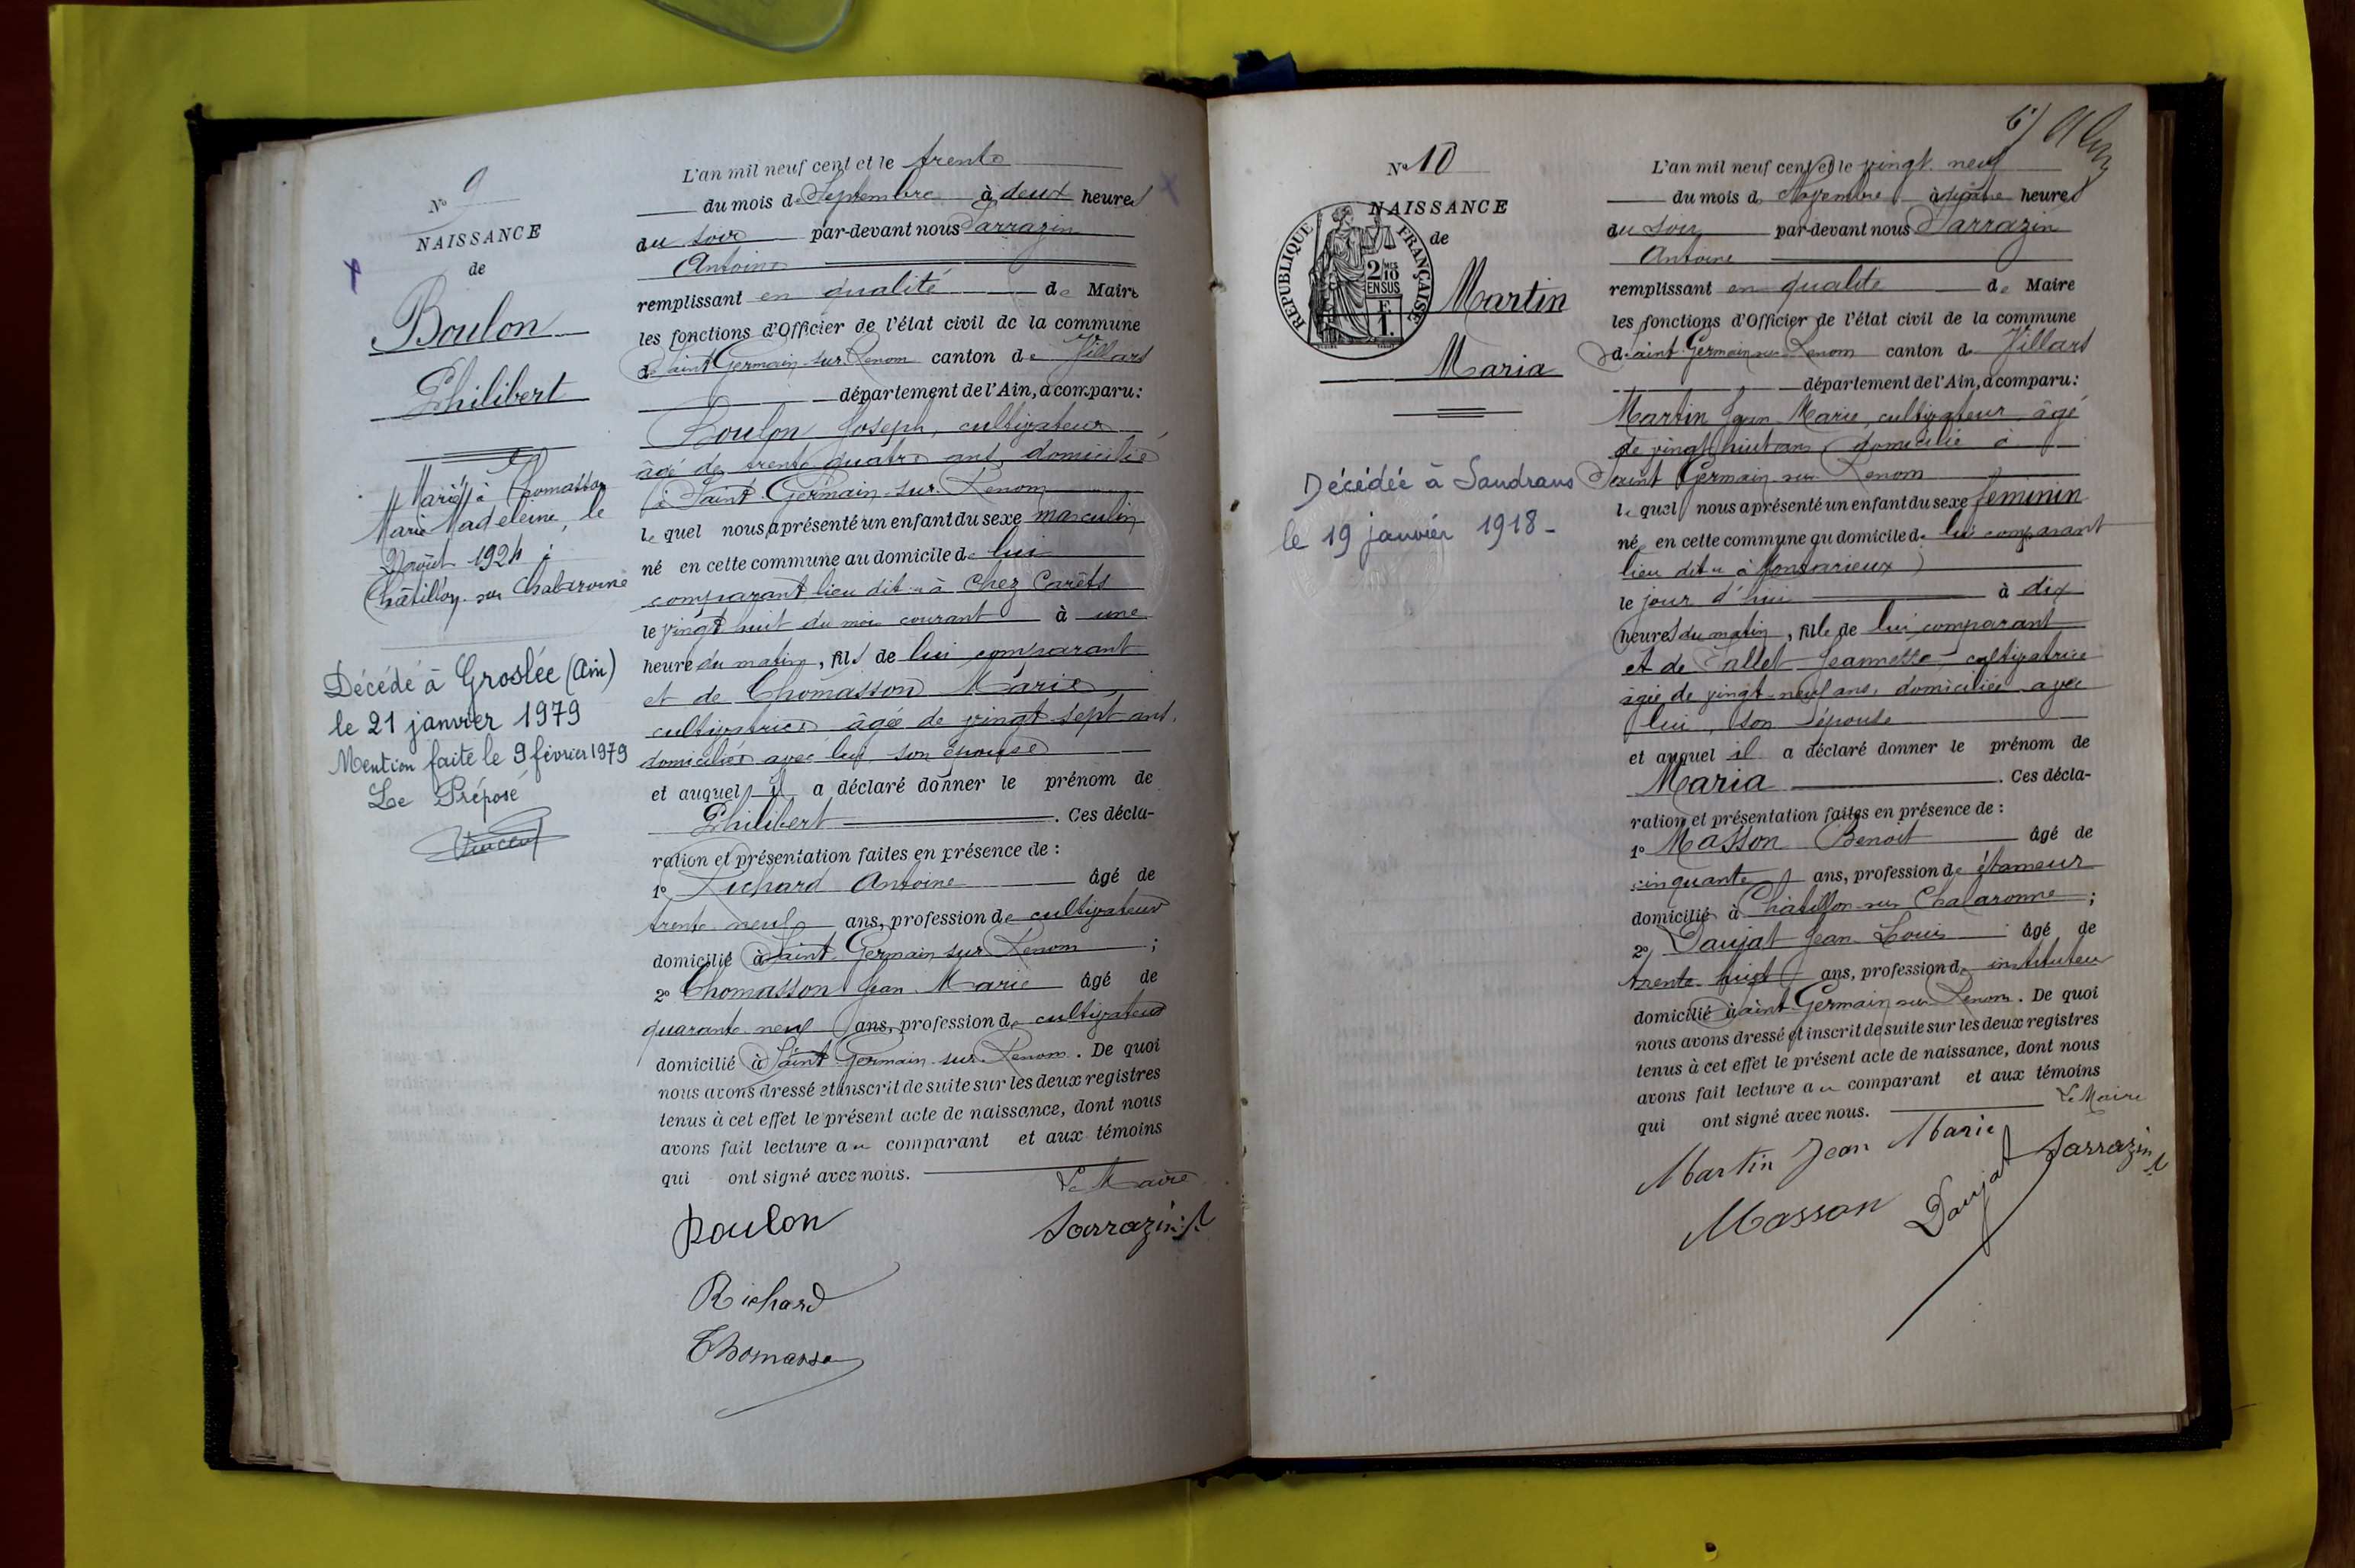 N° 9
NAISSANCE
de
Boulon
Philibert
Marié à Thomasson
Marie Madeleine, le
août 1924 à
Châtillon sur Chalaronne
Décédé à Groslée (Ain)
le 21 janvier 1979
Mention faite le 9 février 1979
Le Préposé
L'an mil neuf cent et le trente
du mois de Septembre à deux heures
du soir par-devant nous Sarrazin
Antoine
remplissant en qualité de Maire
les fonctions d'Officier de l'état civil de la commune
de Saint Germain sur Renom canton de Villars
département de l'Ain, a comparu:
Boulon Joseph, cultivateur
âgé de trente quatre ans, domicilié
à Saint Germain sur Renom
lequel nous a présenté un enfant du sexe masculin
né en cette commune au domicile de lui
comparant, lieu dit à Chez Carêts
le vingt huit du mois courant à une
heure du matin, fils de lui comparant
et de Thomasson Marie,
cultivatrice âgée de vingt-sept ans,
domiciliée avec lui, son épouse
et auquel il a déclaré donner le prénom de
Philibert. Ces décla-
ration et présentation faites en présence de :
1° Richard Antoine âgé de
trente neuf ans, profession de cultivateur
domicilié à Saint Germain sur Renom ;
2° Thomasson Jean Marie âgé de
quarante neuf ans, profession de cultivateur
domicilié à Saint Germain sur Renom. De quoi
nous avons dressé et inscrit de suite sur les deux registres
tenus à cet effet le présent acte de naissance, dont nous
avons fait lecture au comparant et aux témoins
qui ont signé avec nous.
Le Maire
Boulon Sarrazin A
Richard
Thomasson
N° 10
NAISSANCE
de
REPUBLIQUE FRANÇAISE
2/10
EN SUS
Martin
Maria
Décédée à Sandrans
le 19 janvier 1918 -
L'an mil neuf cent et le vingt neuf
du mois de Novembre à heures
du soir par-devant nous Sarrazin
Antoine
remplissant en qualité de Maire
les fonctions d'Officier de l'état civil de la commune
de Saint Germain sur Renom canton de Villars
département de l'Ain, a comparu:
Martin Jean Marie, cultivateur âgé
de vingt huit ans, domicilié à
Saint Germain sur Renom
lequel nous a présenté un enfant du sexe feminin
née en cette commune au domicile de lui comparant
lieu dit à
le jour d'hui à dix
heures du matin, fille de lui comparant
et de Jeannette cultivatrice
âgée de vingt-neuf ans, domiciliée avec
lui, son épouse
et auquel il a déclaré donner le prénom de
Maria. Ces décla-
ration et présentation faites en présence de :
1° Masson Benoit âgé de
cinquante ans, profession de étameur
domicilié à Châtillon sur Chalaronne ;
2° Daujat Jean Louis âgé de
trente huit ans, profession de instituteur
domicilié à Saint Germain sur Renom. De quoi
nous avons dressé et inscrit de suite sur les deux registres
tenus à cet effet le présent acte de naissance, dont nous
avons fait lecture au comparant et aux témoins
qui ont signé avec nous.
Le Maire
Martin Jean Marie Sarrazin A
Masson Daujat